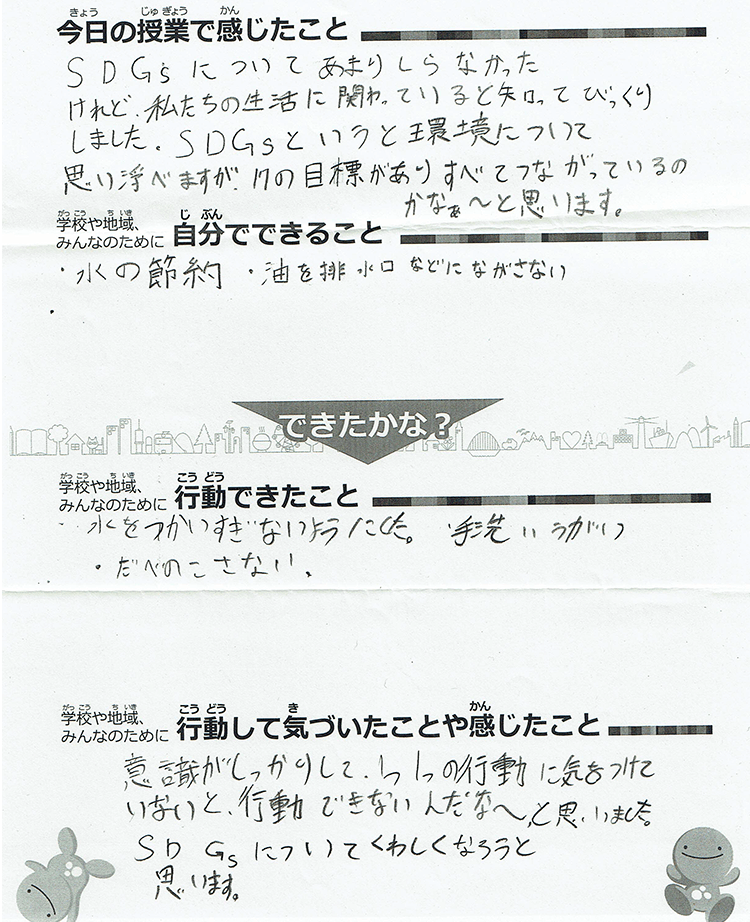 今日の授業で感じたこと
SDGsについてあまりしらなかった
けれど、私たちの生活に関わっていると知ってびっくり
しました。SDGsというと環境について
思い浮べますが、17の目標がありすべてつながっているの
かなぁ〜と思います。
学校や地域、
みんなのために 自分でできること
・水の節約 ・油を排水口などにながさない
・
できたかな？
学校や地域、
みんなのために 行動できたこと
・水をつかいすぎないようにした。・手洗い うがい
・たべのこさない、
学校や地域、
みんなのために 行動して気づいたことや感じたこと
意識がしっかりして、1つ1つの行動に気をつけて
いないと、行動できないんだな〜、と思いました。
SDGsについてくわしくなろうと
思います。